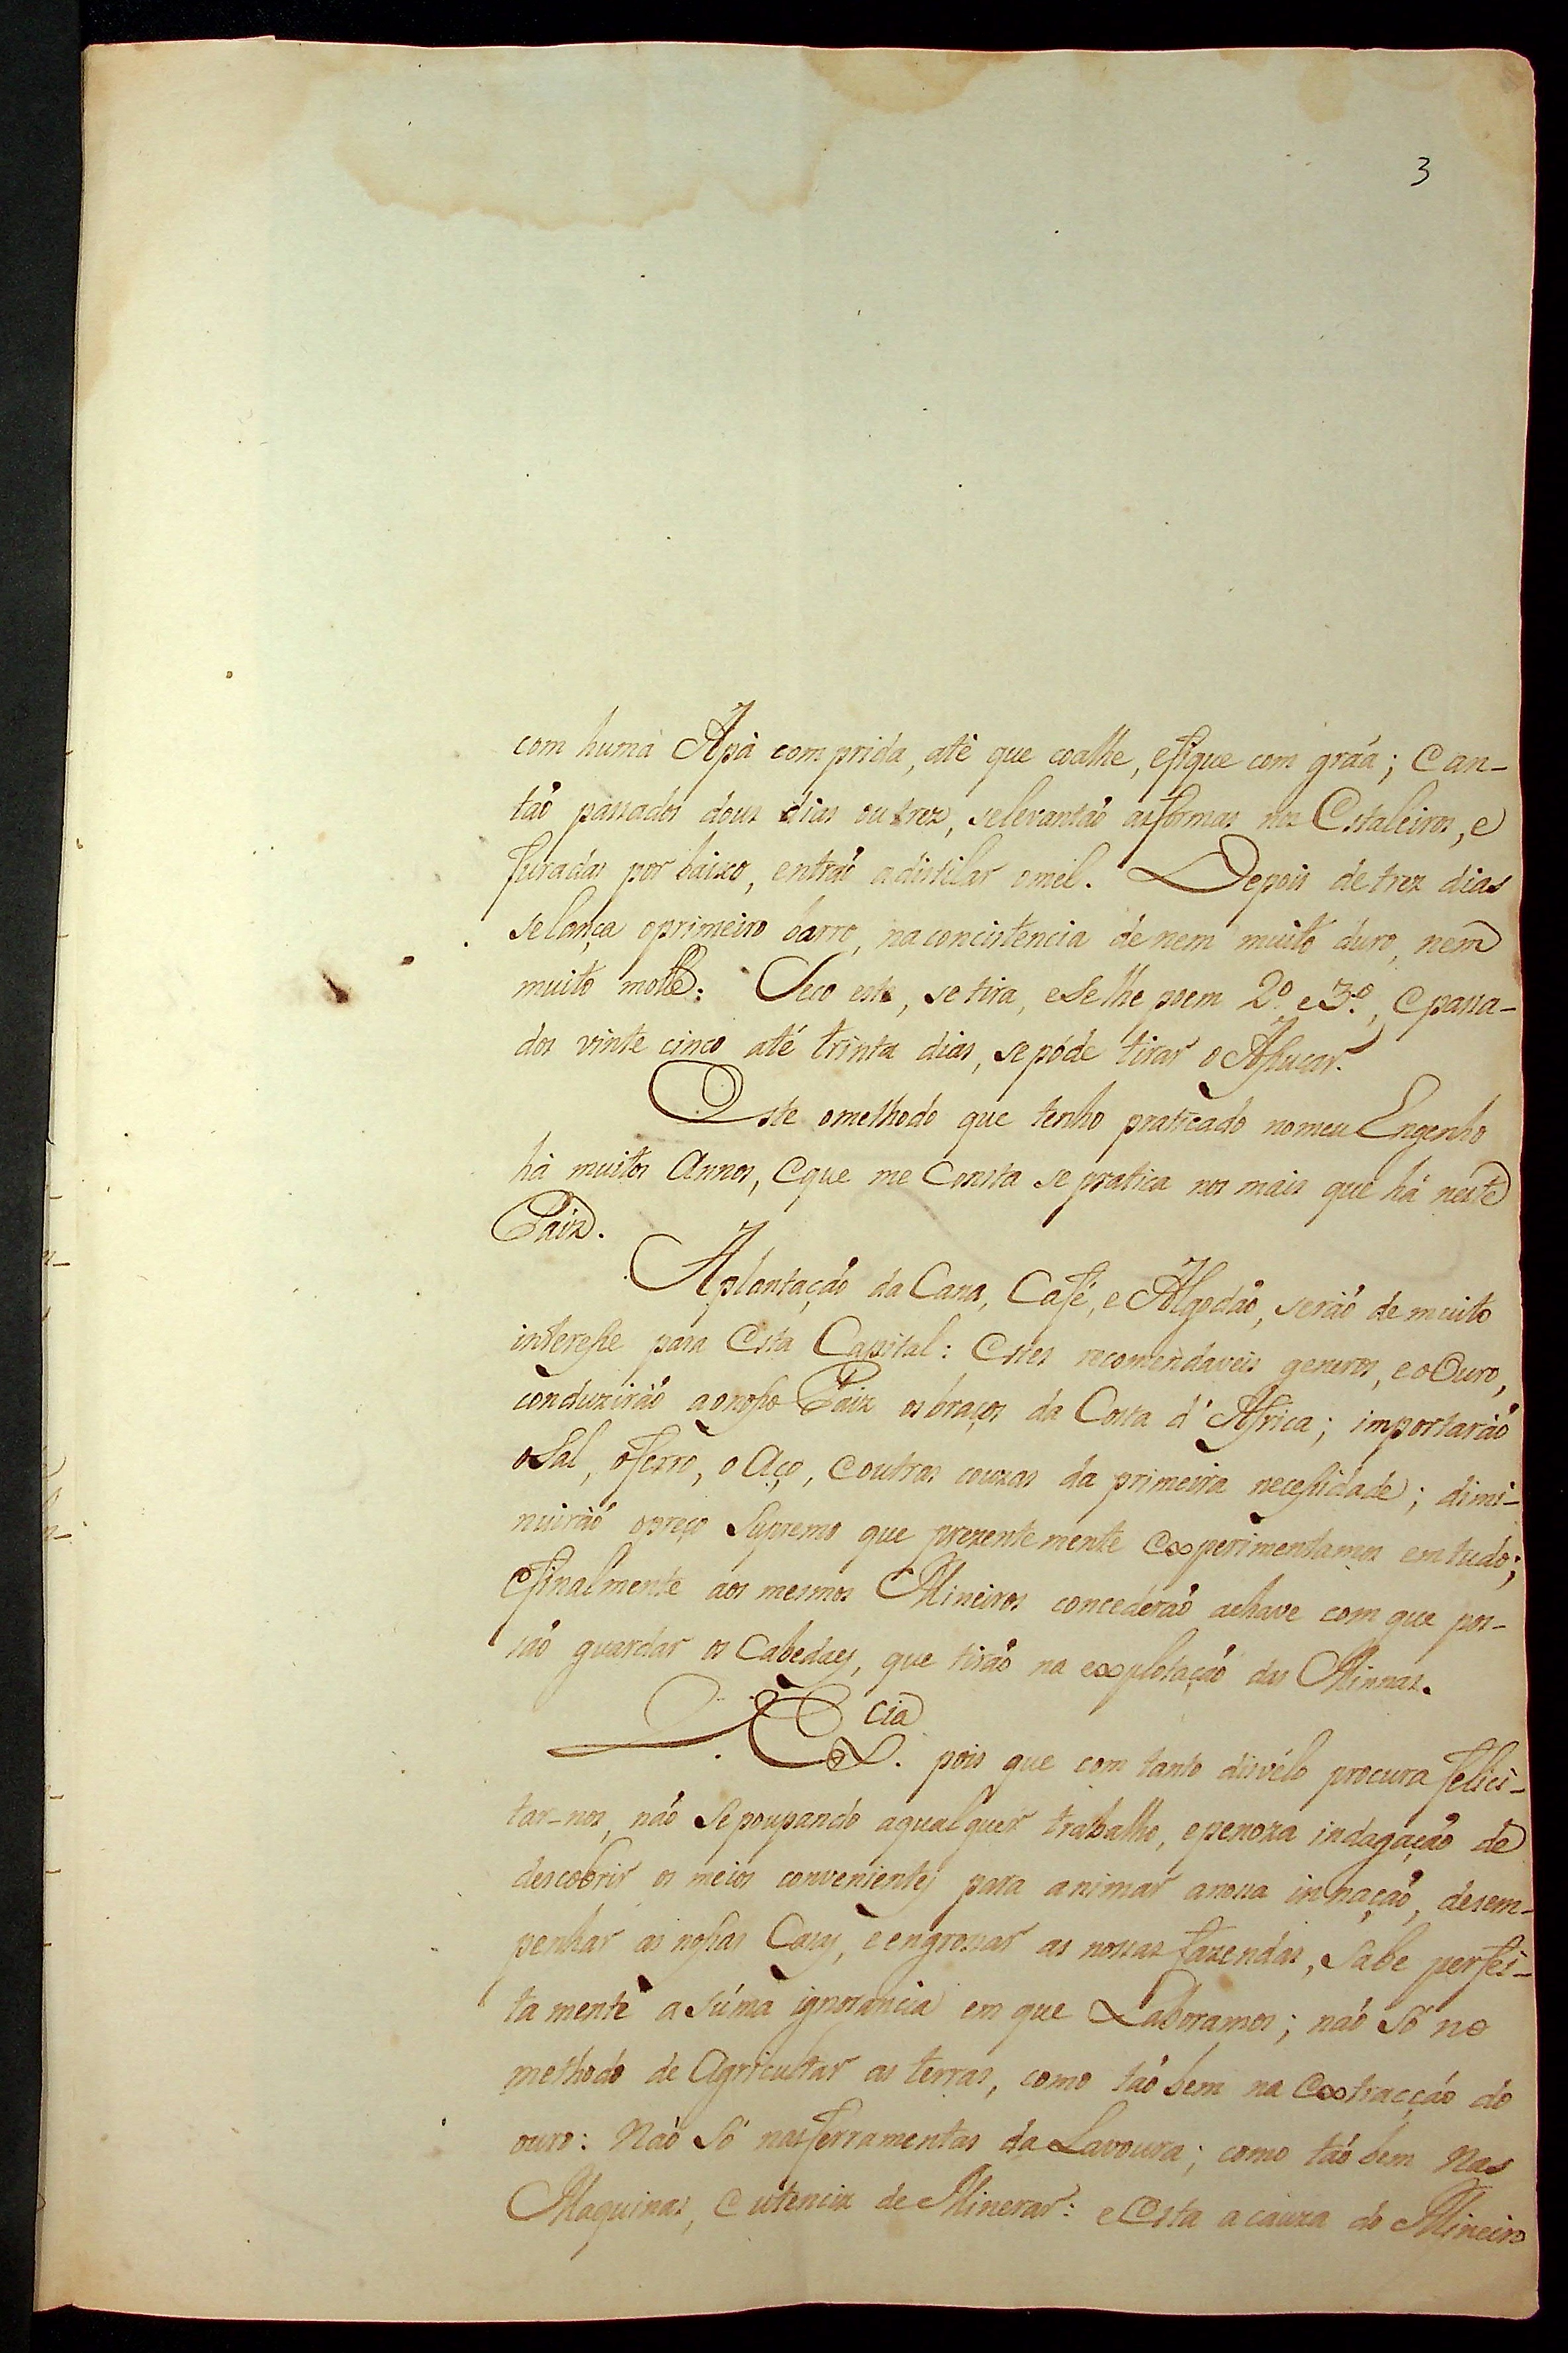 3
com huma Apà comprida, atè que coalhe, efique com gráa; Can-
tão passados dous dias ou trez, selevantão asformas nos Estaleiros, e
furadas por baixo, entrão adistilar omel. Depois detrez dias
selança oprimeiro barro, naconcistencia denem muito duro, nem
muito molle: Seco este, setira, eSelhe poem 2º e3º, epassa-
dos vinte cinco até trinta dias, sepóde tirar oAssucar.
Este omethodo que tenho praticado nomeu Engenho
há muitos Annos, eque me Consta sepratica nos mais que há neste
Paiz.
Aplantação daCana, Café, e Algodão, serão demuito
interesse para Esta Capital: Estes recomendaveis generos, eoOuro,
conduzirão aonosso Paiz osbraços da Costa d'Africa; importarão
oSal, oferro, oAço, eoutras couzas da primeira necessidade; dimi-
nuirão opreço Supremo que prezentemente Experimentamos emtudo;
efinalmente aos mesmos Mineiros concederão achave com que pos-
são guardar os Cabedaes, que tirão na explotação das Minnas.
V. Excia pois que com tanto disvélo procura felici-
tar-nos, não Sepoupando aqualquer trabalho, epenoza indagação de
descobrir os meios convenientes para animar anossa innação, desem-
penhar as nossas Cazas, eengrossar as nossas fazendas, Sabe perfei-
tamente asúma ignorancia em que Laboramos; não Só no
methodo de Agricultar as terras, como tão bem na Extracção do
ouro: Não Só nasferramentas da Lavoura; como tão bem Nas
Maquinas, e utenciz de Minerar: eEsta acauza do Mineiro